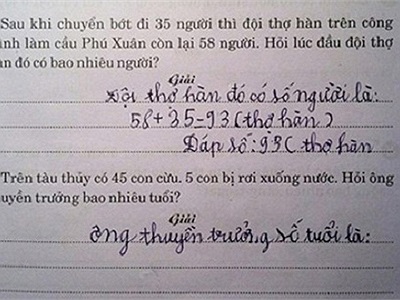 Sau khi chuyển bớt đi 35 người thì đội thợ hàn trên công
ình làm cầu Phú Xuân còn lại 58 người. Hỏi lúc đầu đội thợ
àn đó có bao nhiêu người?
Giải
Đội thợ hàn đó có số người là:
58+35=93 (thợ hàn)
Đáp số: 93 (thợ hàn
Trên tàu thủy có 45 con cừu. 5 con bị rơi xuống nước. Hỏi ông
uyền trưởng bao nhiêu tuổi?
Giải
ông thuyền trưởng số tuổi là: